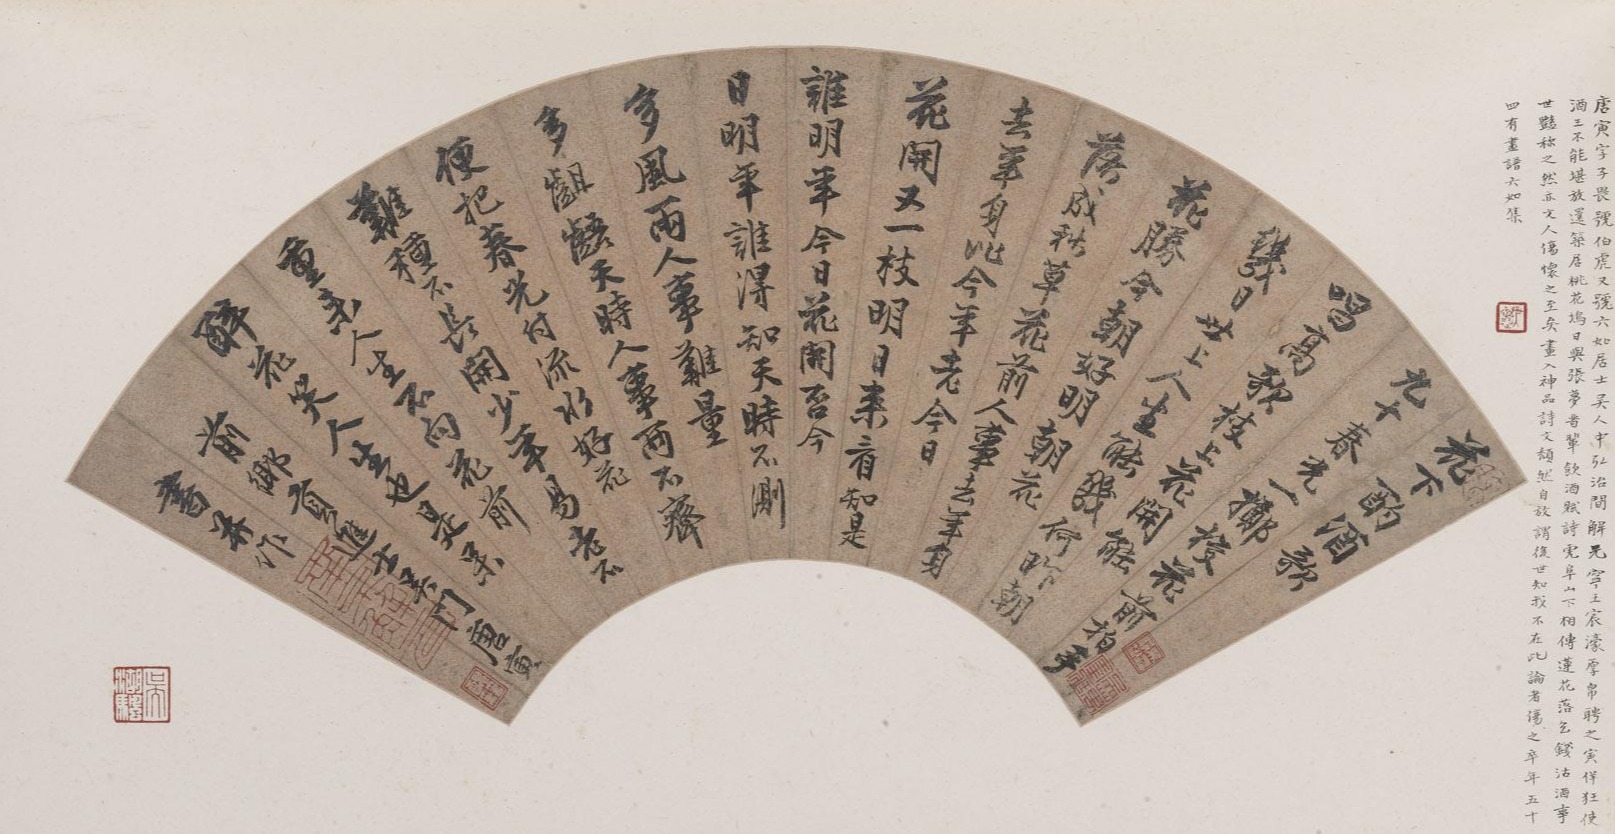 唐寅字子畏號伯虎又號六如居士吳人中弘治間解元寧王宸濠厚帛聘之寅佯狂使
酒王不能堪放還築居桃花塢日與張夢晉輩飲酒賦詩虎阜山下相傳蓮花落乞錢沽酒事
世豔稱之然亦文人傷懷之至矣畫入神品詩文頹然自放謂後世知我不在此論者傷之卒年五十
四有畫譜六如集
花下酌酒歌
九十春光一擲梭花前拍手
唱高歌枝上花開能
幾日世上人生能幾何昨朝
花勝今朝好明朝花
落成秋草花前人事去年身
去年身此今年老今日
花開又一枝明日來看知是
誰明年今日花開否今
日明年誰得知天時不測
多風雨人事難量
多齟齬天時人事兩不齊
便把春光付流水好花
難種不長開少年易老不
重來人生不向花前
醉花笑人生也是呆
前鄉貢進士吳門唐寅
書并作